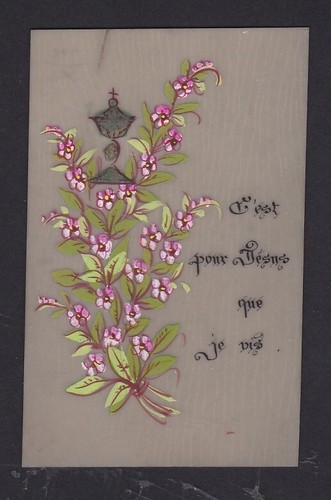 C'est
pour Jésus
que
je vis